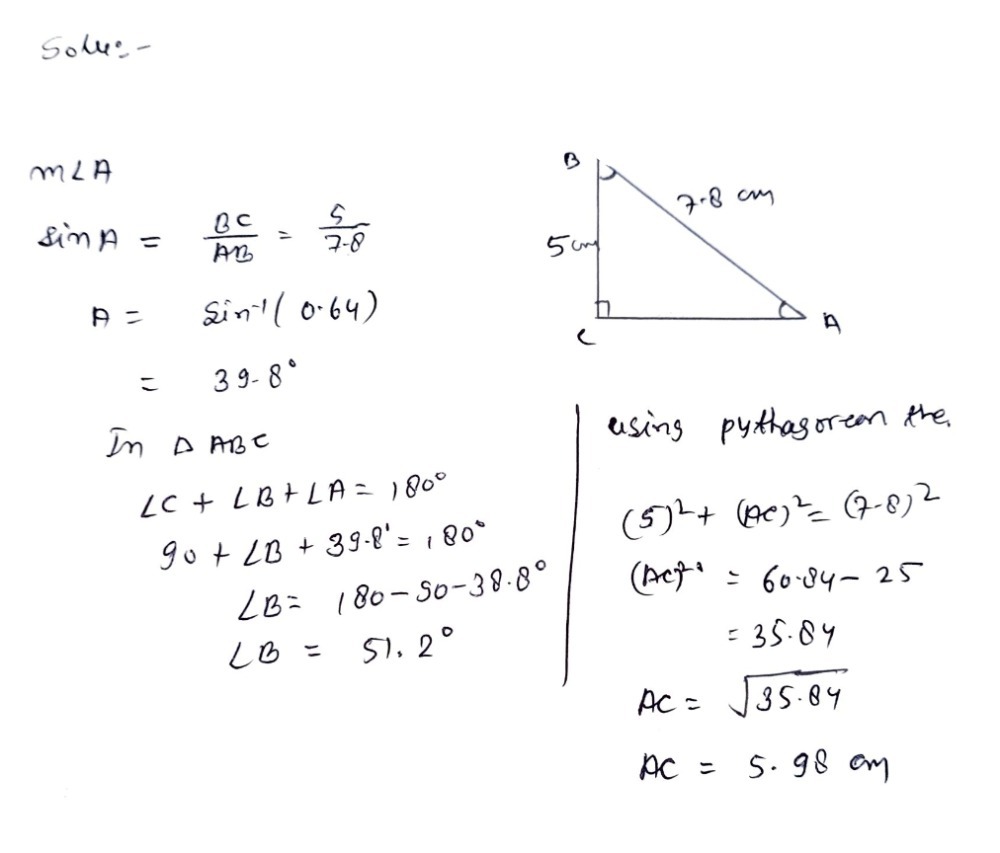 Solve:-
m∠A
sin A = BC/AB = 5/7.8
A = sin⁻¹(0.64)
= 39.8°
In △ ABC
∠C + ∠B + ∠A = 180°
90 + ∠B + 39.8' = 180°
∠B = 180-90-38.8°
∠B = 51.2°
B
7.8 cm
5cm
C
A
using pythagorean the.
(5)² + (AC)² = (7.8)²
(AC)² = 60.84 - 25
= 35.84
AC = √35.84
AC = 5.98 cm